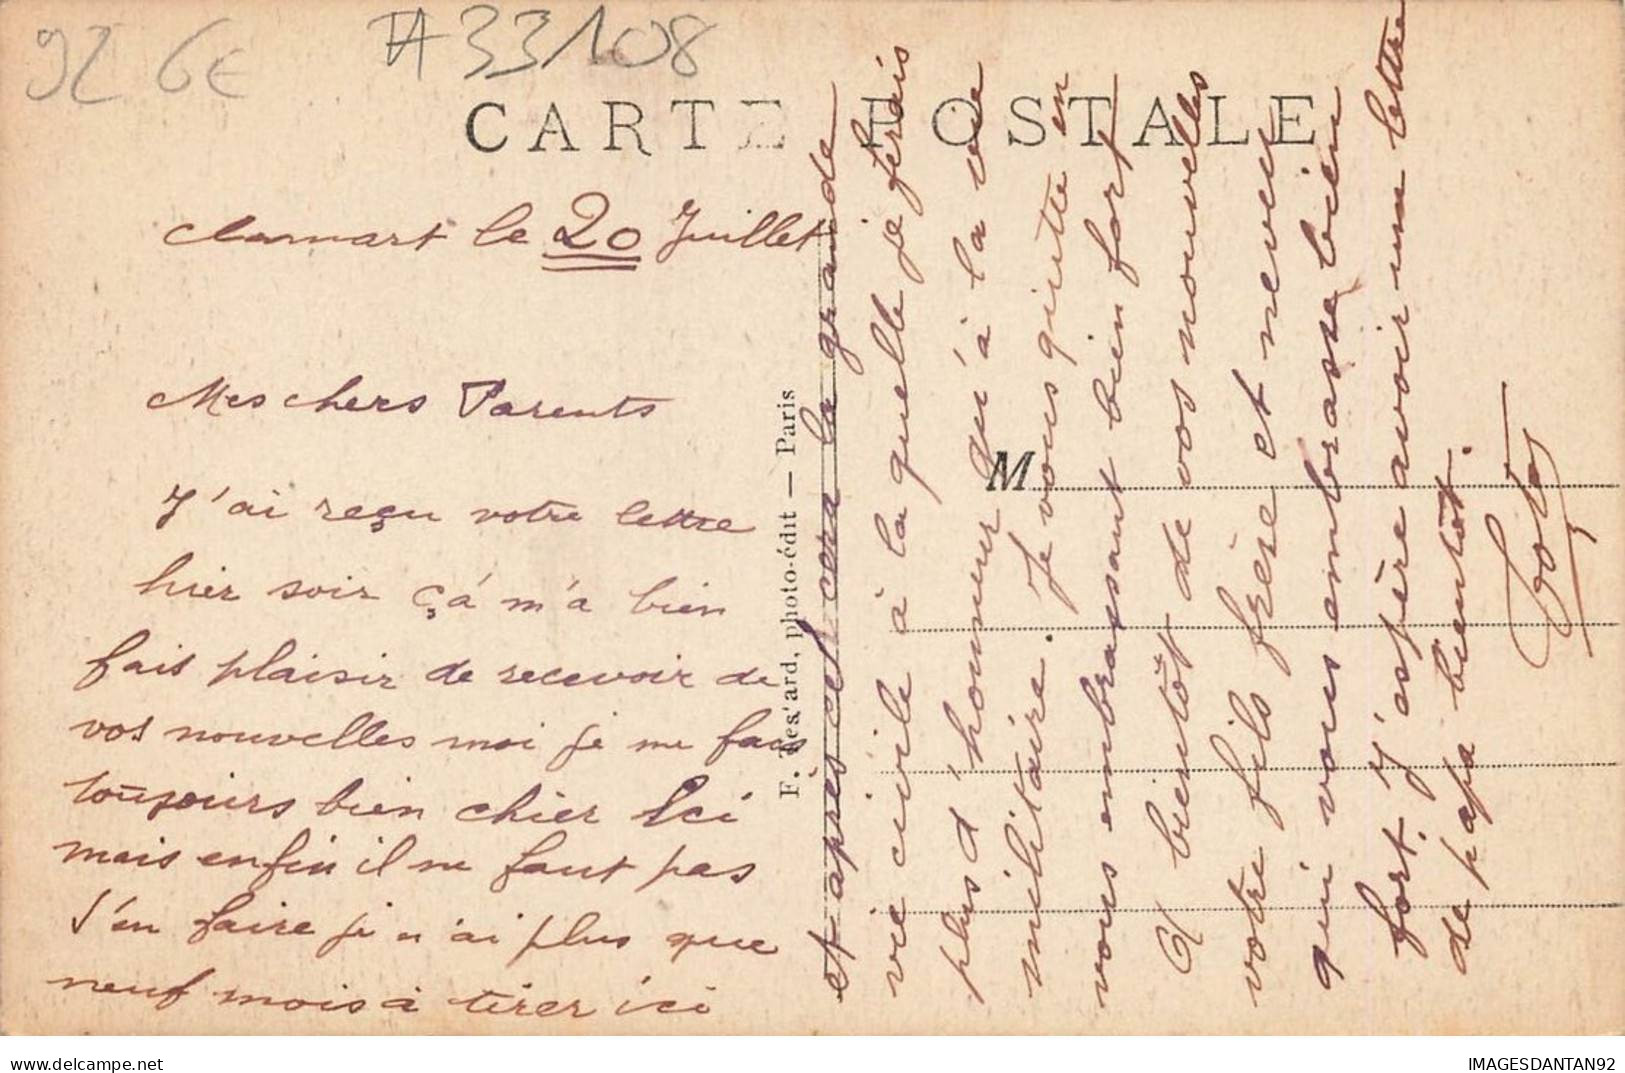 92 6€
A33108
CARTE POSTALE
Clamart le 20 Juillet
Mes chers Parents
J'ai reçu votre lettre
hier soir çá m'a bien
fait plaisir de recevoir de
vos nouvelles moi je me fais
toujours bien chier Ici
mais enfin il ne faut pas
s'en faire je n'ai plus que
neuf mois à tirer ici
F. Tes'ard, photo-édit — Paris
M
et apres cel cera la grande
vie civile à la quelle je ferais
plus d'honneur qu'à la vie
militaire. Je vous quitte en
vous embrassant bien fort
A bientôt de vos nouvelles
votre fils frère et neveu
qui vous embrasse bien
fort J'espère avoir une lettre
de papa bientôt.
delcampe.net
IMAGESDANTAN92